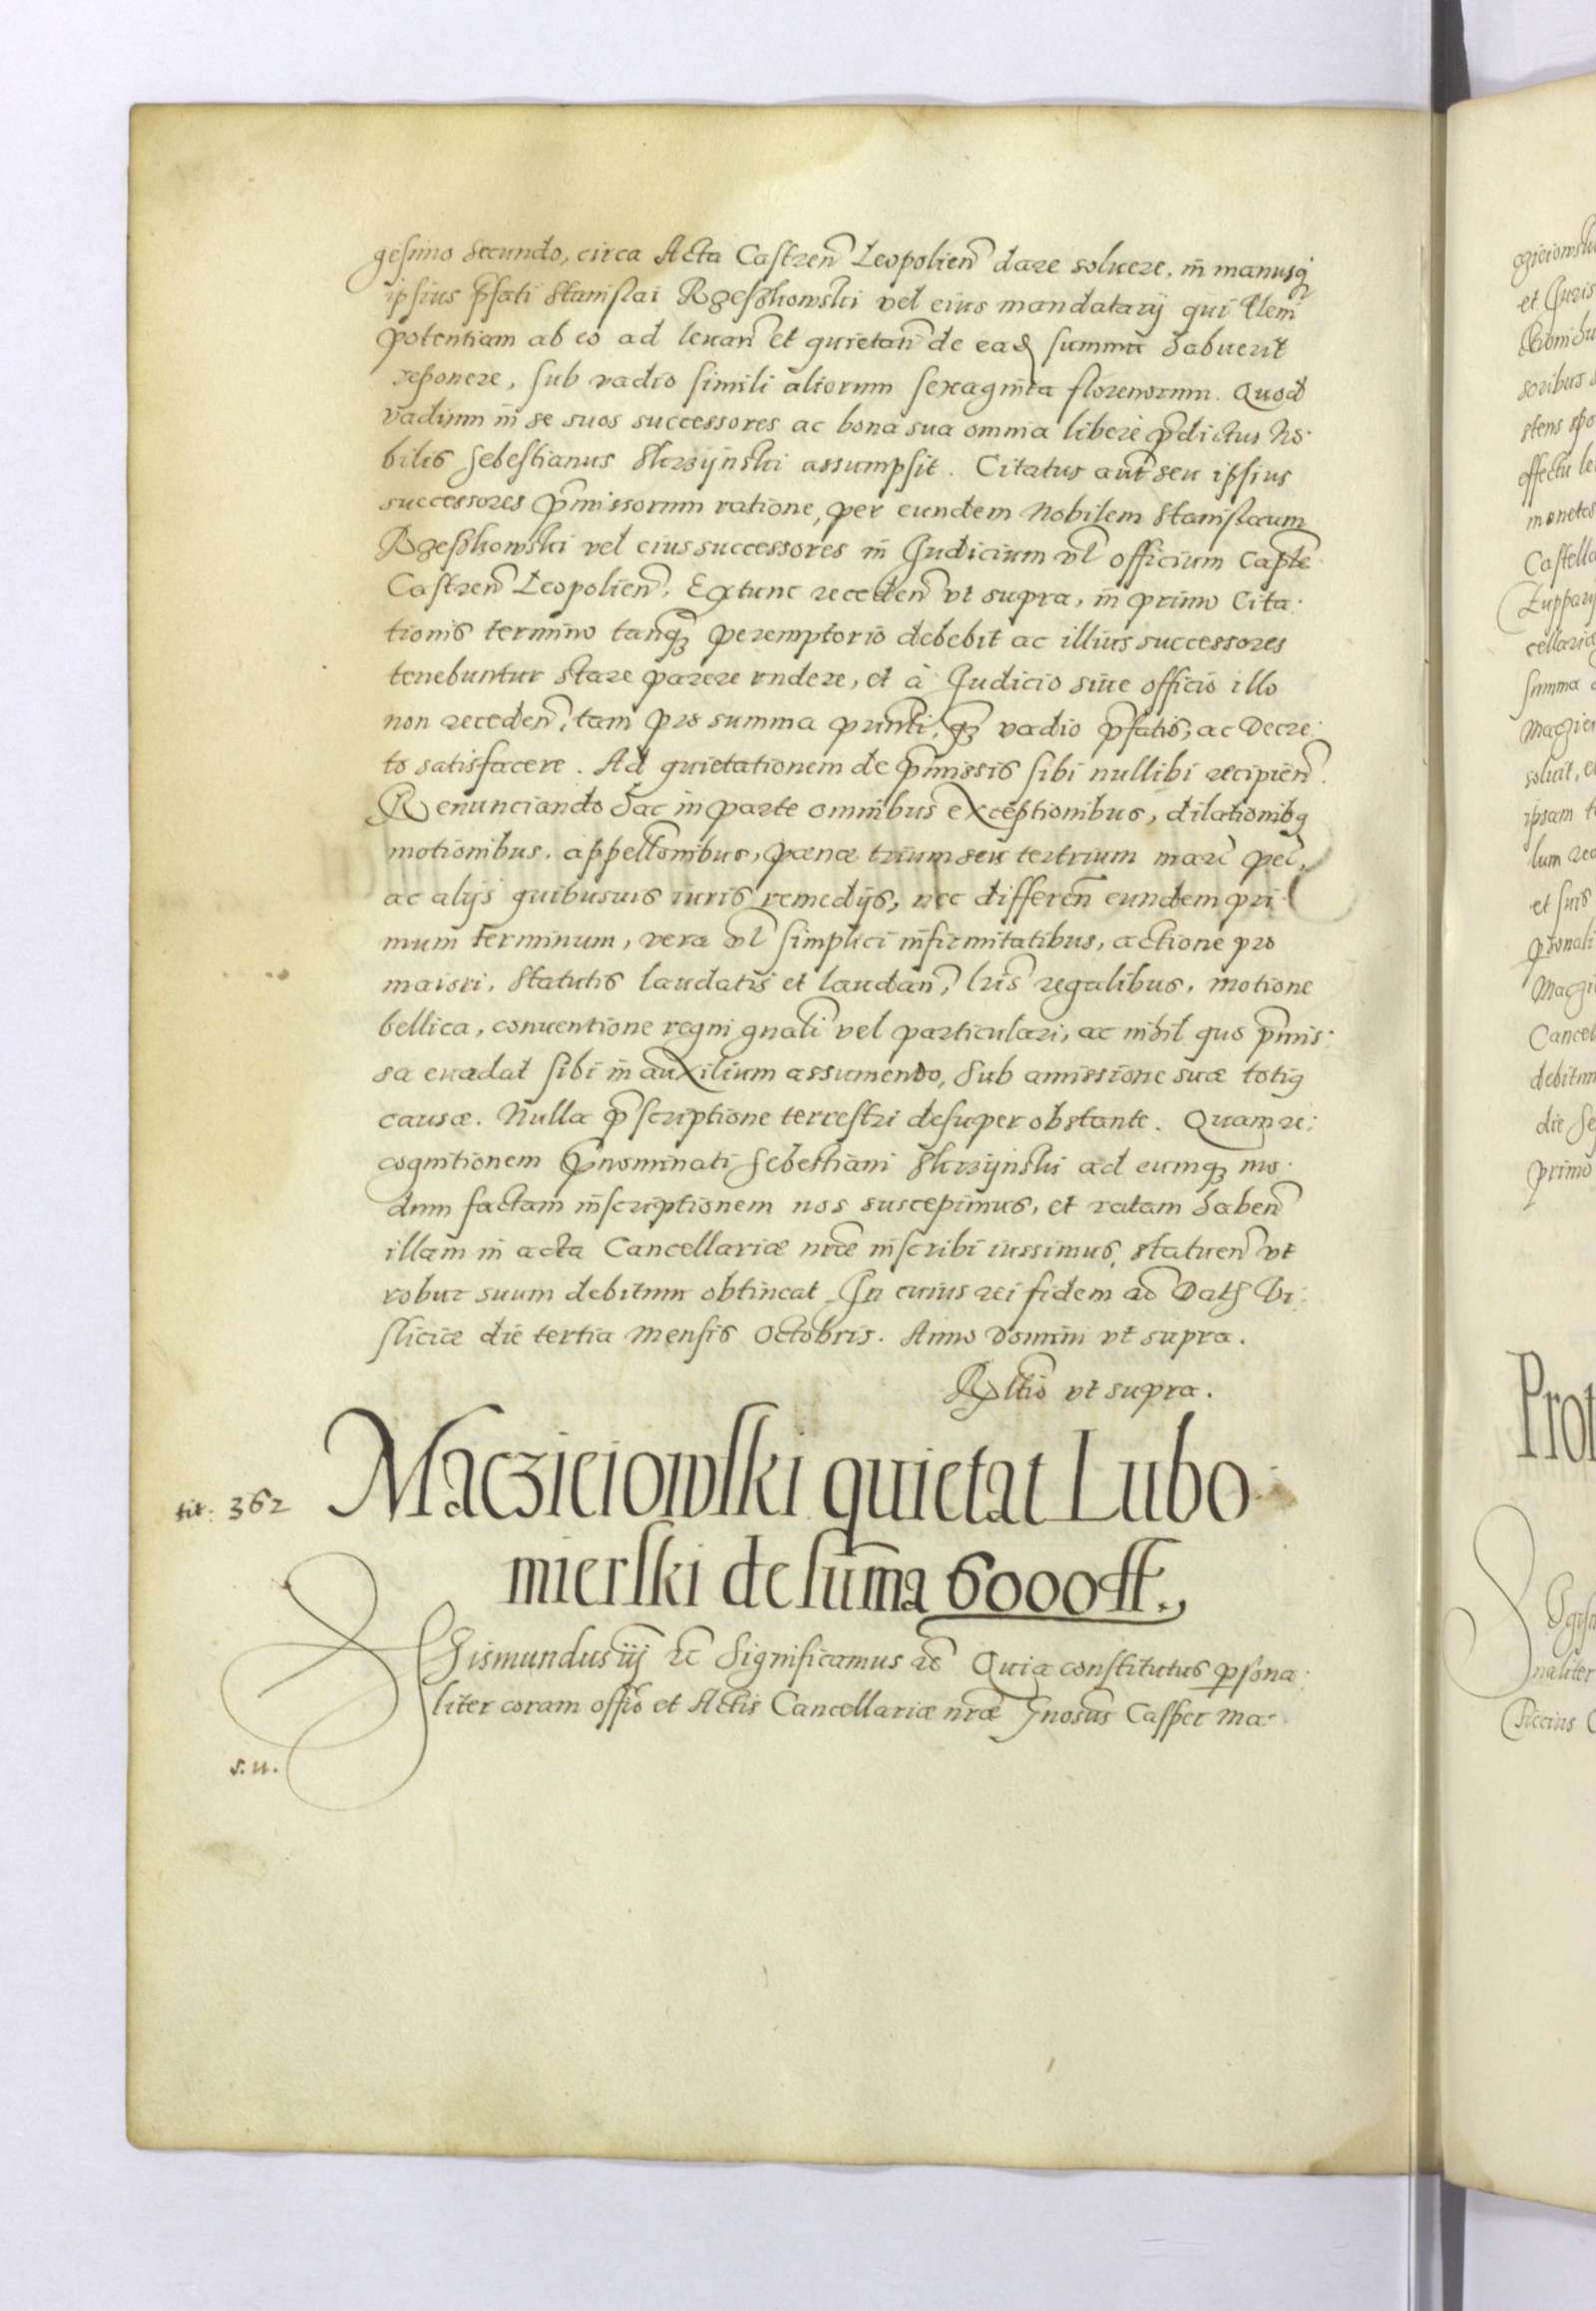 gesimo secundo, circa Acta Castreñ Leopolieñ dare soluere, in manusq
ipsius p̃fati Stanislai Rzeszkowski vel eius mandatarÿ qui plem̃
potentiam ab eo ad leuañ et quietañ de ead summa habuerit
reponere, sub vadio simili aliorum sexaginta florenorum. Quod
vadium in se suos successores ac bona sua omnia liberè p̃dictus No:
bilis Sebestianus Skrzÿnski assumpsit. Citatus aut̃ seu ipsius
successores p̃missorum ratione, per eundem Nobilem Stanislaum
Rzeszkowski vel eius successores in Judicium vl̃ officium Capt̃e
Castreñ Leopolieñ, Extunc recedeñ vt supra, in primo Cita:
tionis termino tanq̃ꝫ peremptorio debebit ac illius successores
tenebuntur stare parere rñdere, et à Judicio siue officio illo
non recedeñ, tam pro summa prñti, q̃ꝫ vadio p̃fatis, ac Decre:
to satisfacere. Ad quietationem de p̃missis sibi nullibi recipieñ.
Renunciando hac in parte omnibus exceptionibus, dilationibq
motionibus, appellõnibus, pœnæ trium seu tertrium mar̃ pec̃,
ac alÿs quibusuis iuris remedÿs, nec differeñ eundem pri:
mum terminum, vera vl̃ simplici infirmitatibus, actione pro
maiori, Statutis laudatis et laudañ, lr̃is regalibus, motione
bellica, conuentione regni gñali vel particulari, ac nihil quo p̃mis:
sa euadat sibi in auxilium assumendo, Sub amissione suæ totiq
causæ. Nulla p̃scriptione terrestri desuper obstante. Quam re:
cognitionem p̃nominati Sebestiani Skrzÿnski ad eumqꝫ mo:
dum factam inscriptionem nos suscepimus, et ratam habeñ
illam in acta Cancellariæ nr̃æ inscribi iussimus, statueñ vt
robur suum debitum obtineat. In cuius rei fidem ac̃ Dath Vi:
sliciæ die tertia mensis Octobris. Anno Domini vt supra.
Rl̃tio vt supra.
tit: 362
Macziciowski quietat Lubo:
mierski de sum̃a 6000 ff.,
Sigismundus iij ec̃ Significamus ac̃ Quia constitutus p̱sona:
liter coram offi̊o et Actis Cancellariæ nr̃æ Gñosus Casper Ma:
s. u.